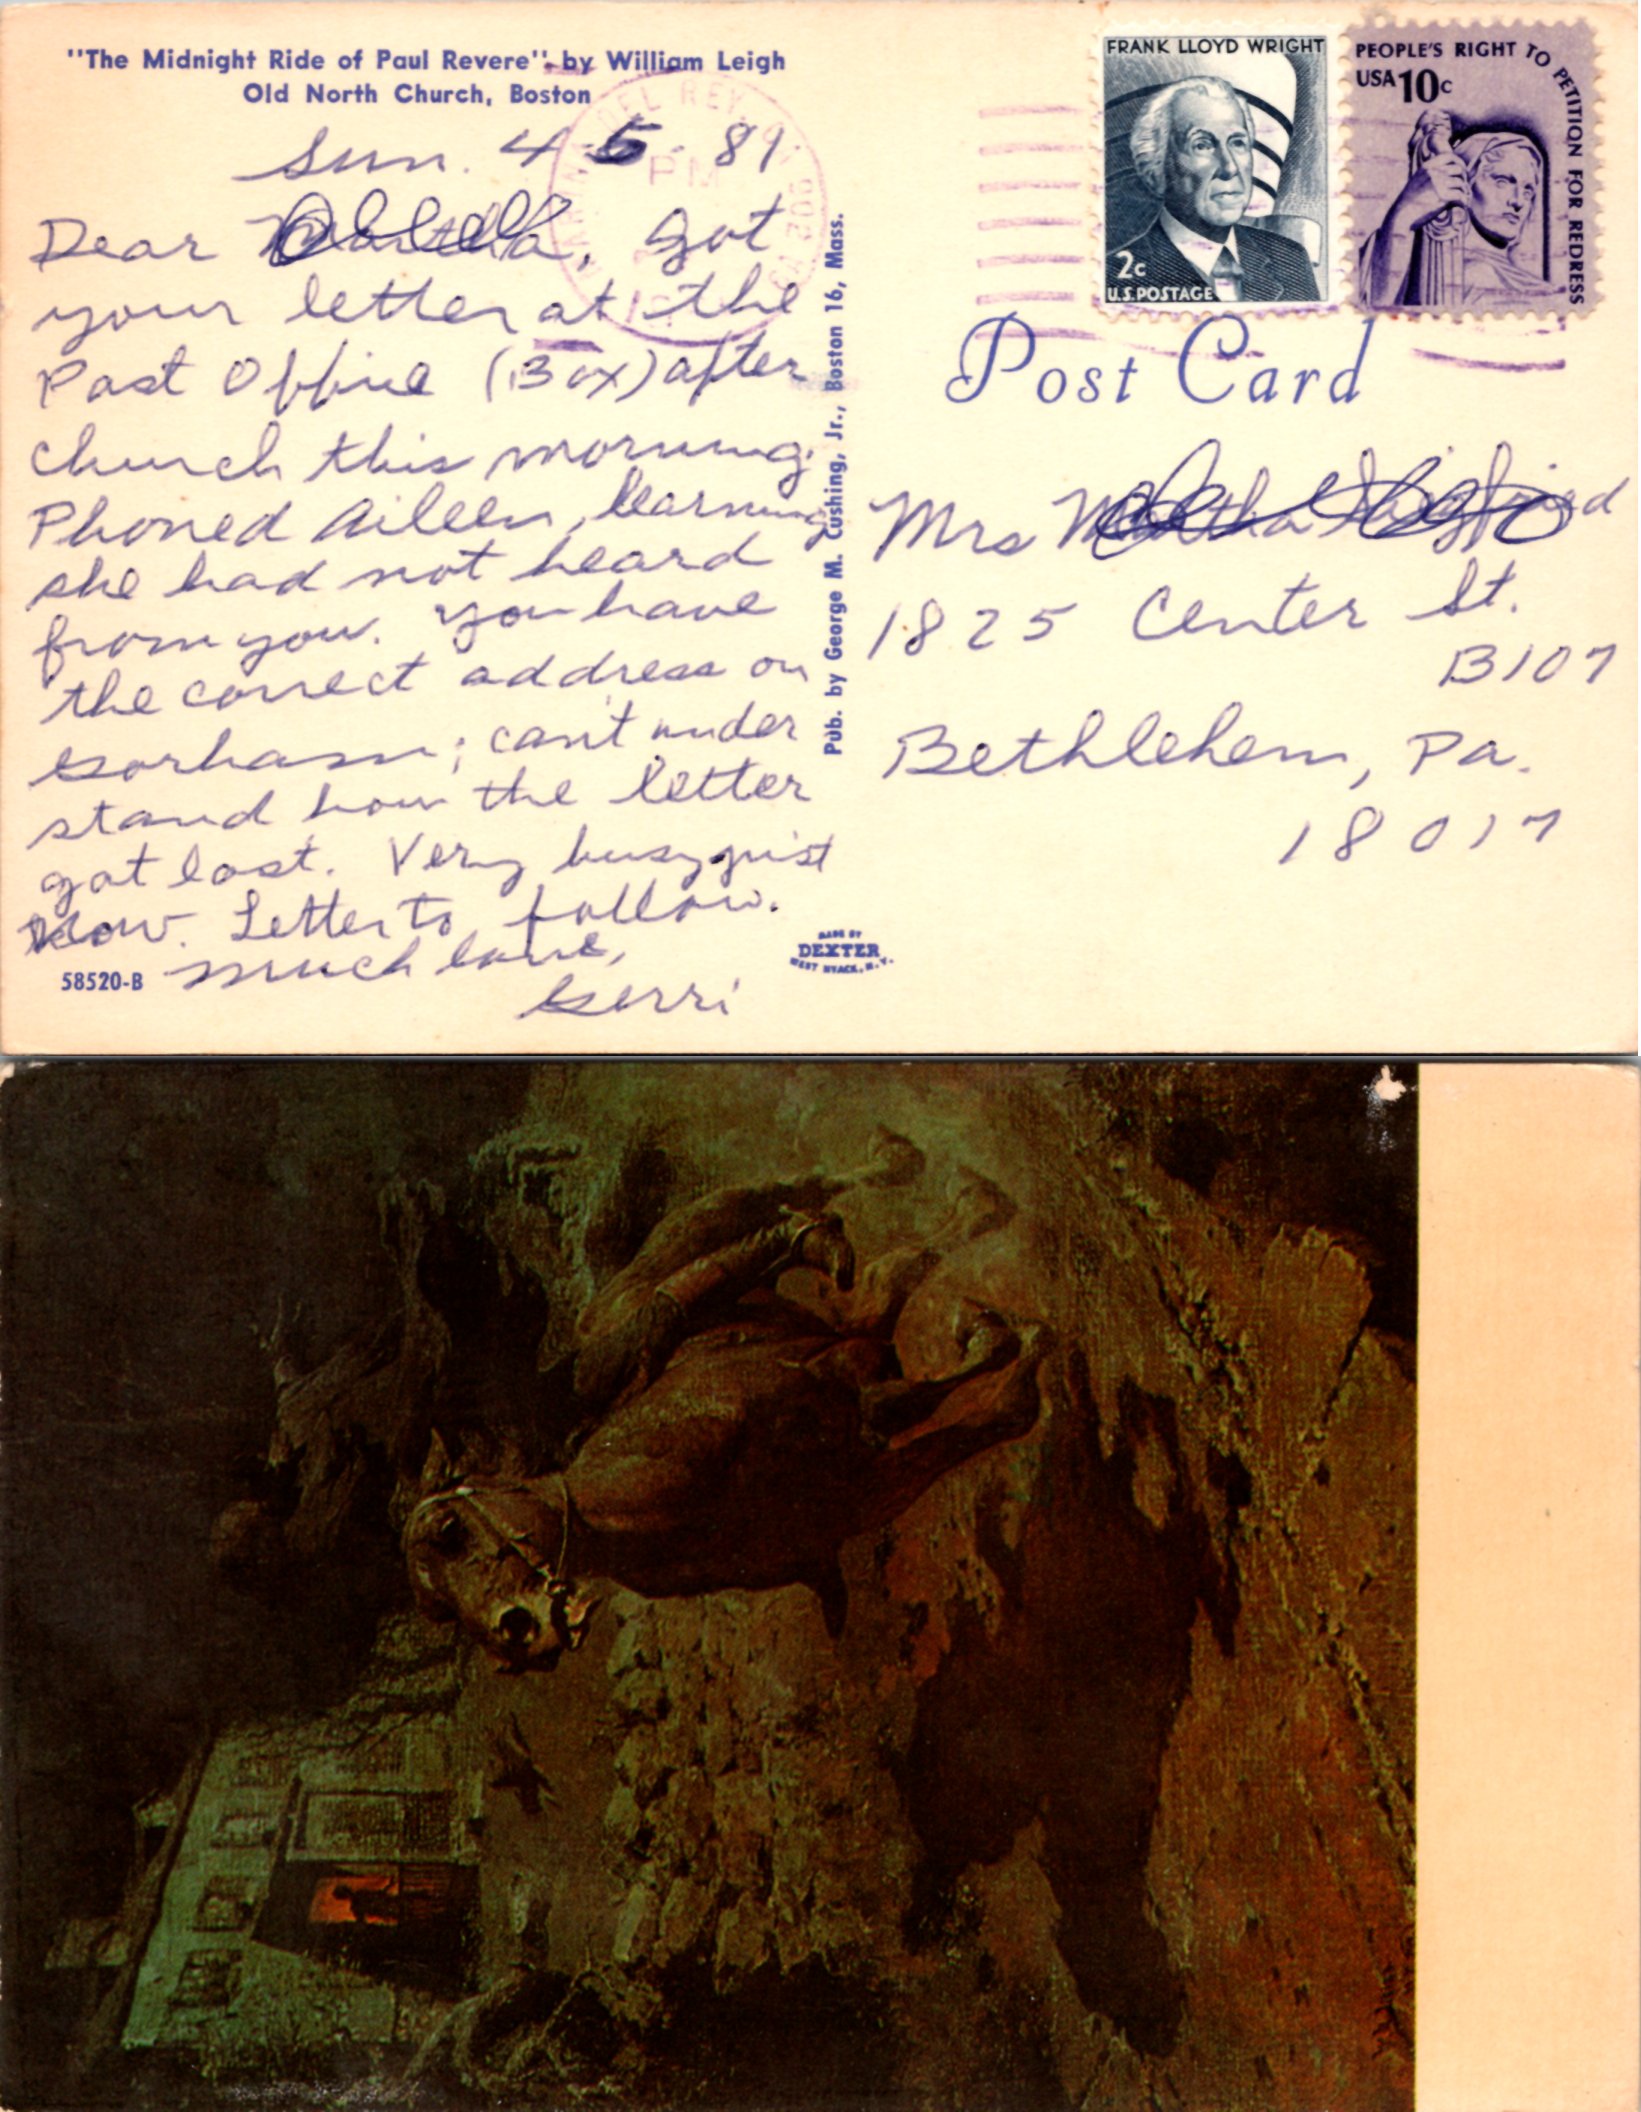 "The Midnight Ride of Paul Revere" - by William Leigh
Old North Church, Boston
Sun. 4-5-81
Dear , got
your letter at the
Post Office (Box) after
church this morning.
Phoned Aileen, learning
she had not heard
from you. You have
the correct address on
Gorham; can't under
stand how the letter
got lost. Very busy just
now. Letter to follow.
much love,
Gerri
58520-B
Pub. by George M. Cushing, Jr., Boston 16, Mass.
MADE BY
DEXTER
WEST NYACK, N.Y.
DEL REY
PM
FRANK LLOYD WRIGHT
2c
U.S. POSTAGE
PEOPLE'S RIGHT TO PETITION FOR REDRESS
USA 10c
Post Card
Mrs
1825 Center St.
B107
Bethlehem, Pa.
18017